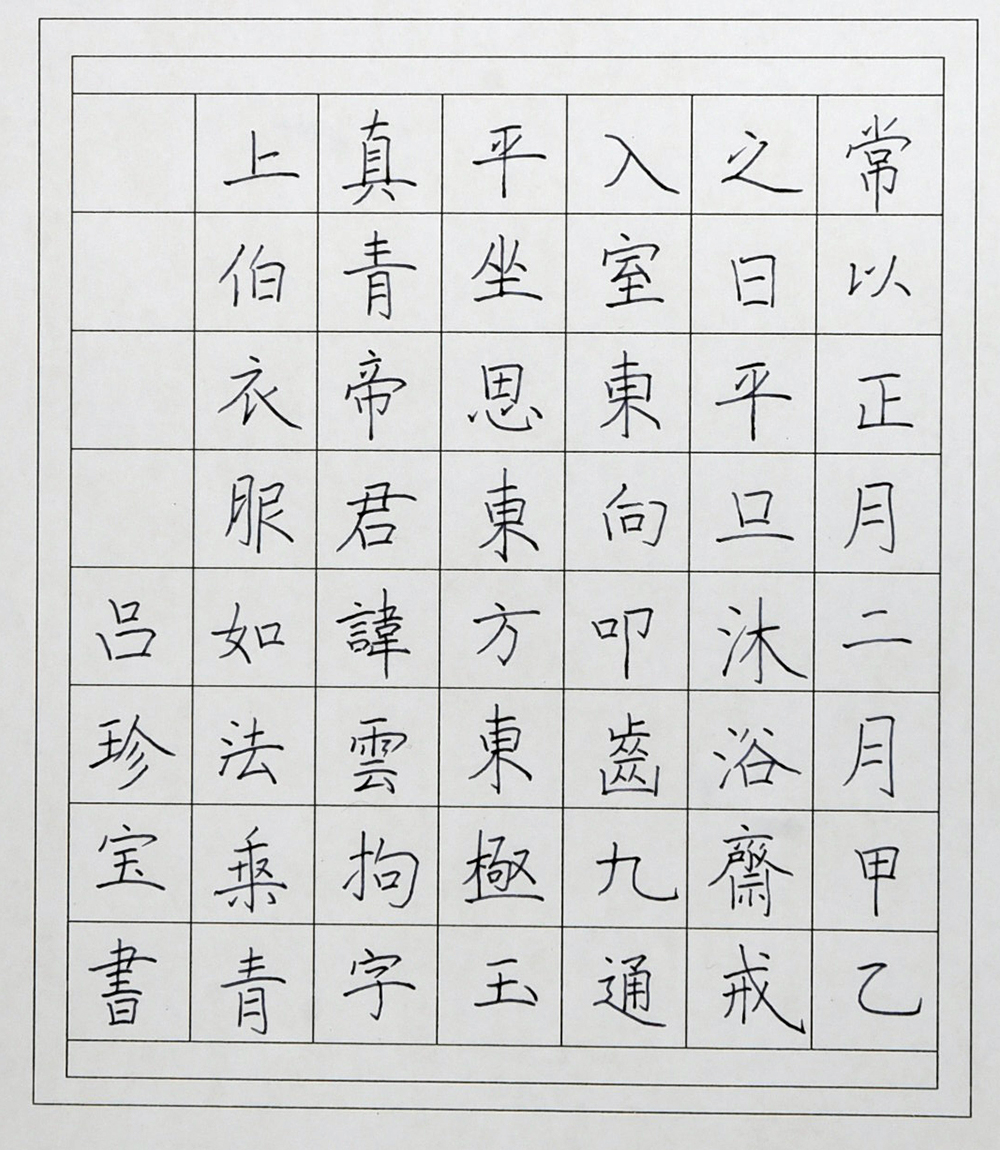 常以正月二月甲乙
之日平旦沐浴齋戒
入室東向叩齒九通
平坐思東方東極玉
真青帝君諱雲拘字
上伯衣服如法乘青
吕珍宝書